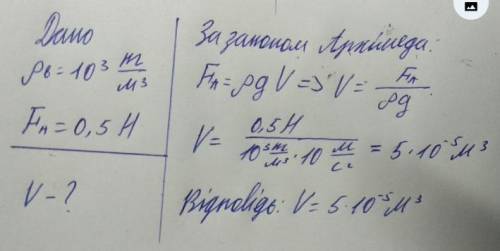 Дано
ρв = 10³ т/м³
Fп = 0,5 Н
V - ?
За законом Архімеда:
Fп = ρgV => V = Fп/ρg
V = 0,5Н/(10³ т/м³ · 10 м/с²) = 5·10⁻⁵ м³
Відповідь: V = 5·10⁻⁵ м³